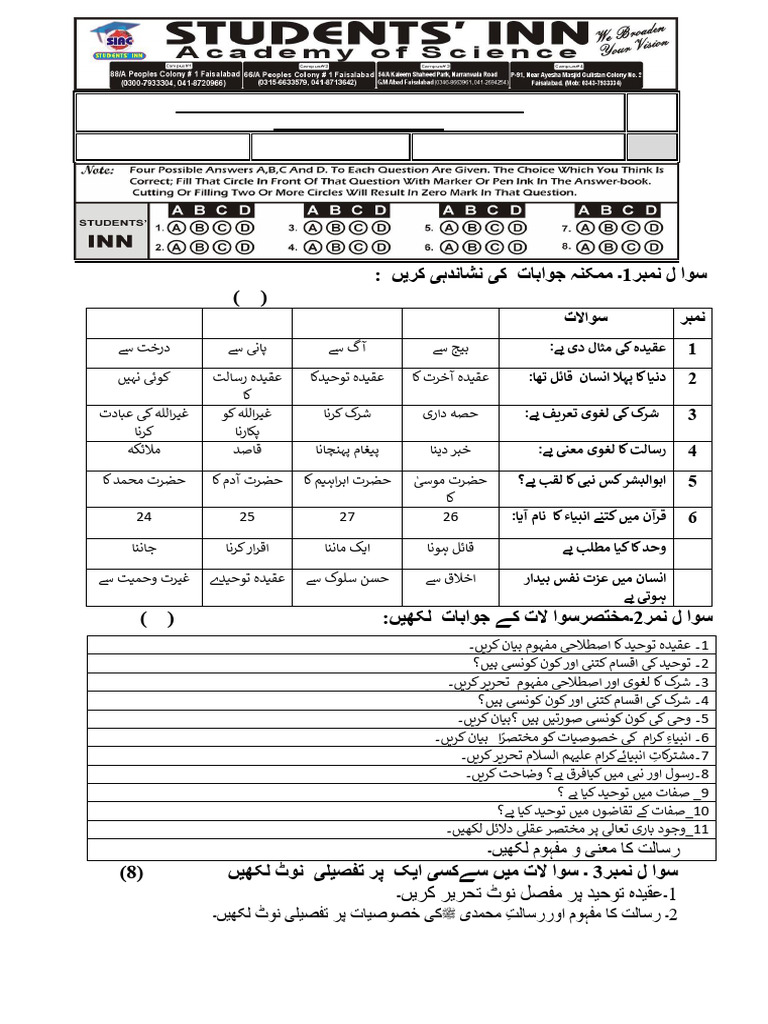 STUDENTS' INN
We Broaden
Your Vision
SIAC
STUDENTS' INN
Academy of Science
Campus#1
88/A Peoples Colony # 1 Faisalabad
(0300-7933304, 041-8720966)
Campus#2
66/A Peoples Colony # 1 Faisalabad
(0315-6633579, 041-8713642)
Campus#3
54/A Kaleem Shaheed Park, Narranwala Road
Campus#4
P-91, Near Ayesha Masjid Gulistan Colony No. 2
Faisalabad. (Mob: 0343-7933334)
Note: Four Possible Answers A,B,C And D. To Each Question Are Given. The Choice Which You Think Is
Correct; Fill That Circle In Front Of That Question With Marker Or Pen Ink In The Answer-book.
Cutting Or Filling Two Or More Circles Will Result In Zero Mark In That Question.
STUDENTS'
INN
A B C D A B C D A B C D A B C D
1. A B C D 3. A B C D 5. A B C D 7. A B C D
2. A B C D 4. A B C D 6. A B C D 8. A B C D
سوا ل نمبر1۔ ممکنہ جوابات کی نشاندہی کریں :
( )
نمبر سوالات
1 عقیدہ کی مثال دی ہے: بیج سے آگ سے پانی سے درخت سے
2 دنیا کا پہلا انسان قائل تھا: عقیدہ آخرت کا عقیدہ توحیدکا عقیدہ رسالت کا کوئی نہیں
3 شرک کی لغوی تعریف ہے: حصہ داری شرک کرنا غیراللہ کو پکارنا غیراللہ کی عبادت کرنا
4 رسالت کا لغوی معنی ہے: خبر دینا پیغام پہنچانا قاصد ملائکہ
5 ابوالبشر کس نبی کا لقب ہے؟ حضرت موسیٰ کا حضرت ابراہیم کا حضرت آدم کا حضرت محمد کا
6 قرآن میں کتنے انبیاء کا نام آیا: 26 27 25 24
وحد کا کیا مطلب ہے قائل ہونا ایک ماننا اقرار کرنا جاننا
انسان میں عزت نفس بیدار ہوتی ہے اخلاق سے حسن سلوک سے عقیدہ توحیدے غیرت وحمیت سے
سوا ل نمر2۔مختصرسوا لات کے جوابات لکھیں: ( )
1۔ عقیدہ توحید کا اصطلاحی مفہوم بیان کریں۔
2۔ توحید کی اقسام کتنی اور کون کونسی ہیں؟
3۔ شرک کا لغوی اور اصطلاحی مفہوم تحریر کریں۔
4۔ شرک کی اقسام کتنی اور کون کونسی ہیں؟
5۔ وحی کی کون کونسی صورتیں ہیں ؟بیان کریں۔
6۔ انبیاءِ کرام کی خصوصیات کو مختصرًا بیان کریں۔
7۔مشترکاتِ انبیائےکرام علیہم السلام تحریر کریں۔
8۔رسول اور نبی میں کیافرق ہے؟ وضاحت کریں۔
9_ صفات میں توحید کیا ہے ؟
10_صفات کے تقاضوں میں توحید کیا ہے؟
11_وجود باری تعالی پر مختصر عقلی دلائل لکھیں۔
رسالت کا معنی و مفہوم لکھیں۔
سوا ل نمبر3 ۔ سوا لات میں سےکسی ایک پر تفصیلی نوٹ لکھیں (8)
1۔عقیدہ توحید پر مفصل نوٹ تحریر کریں۔
2۔ رسالت کا مفہوم اوررسالتِ محمدی ﷺکی خصوصیات پر تفصیلی نوٹ لکھیں۔